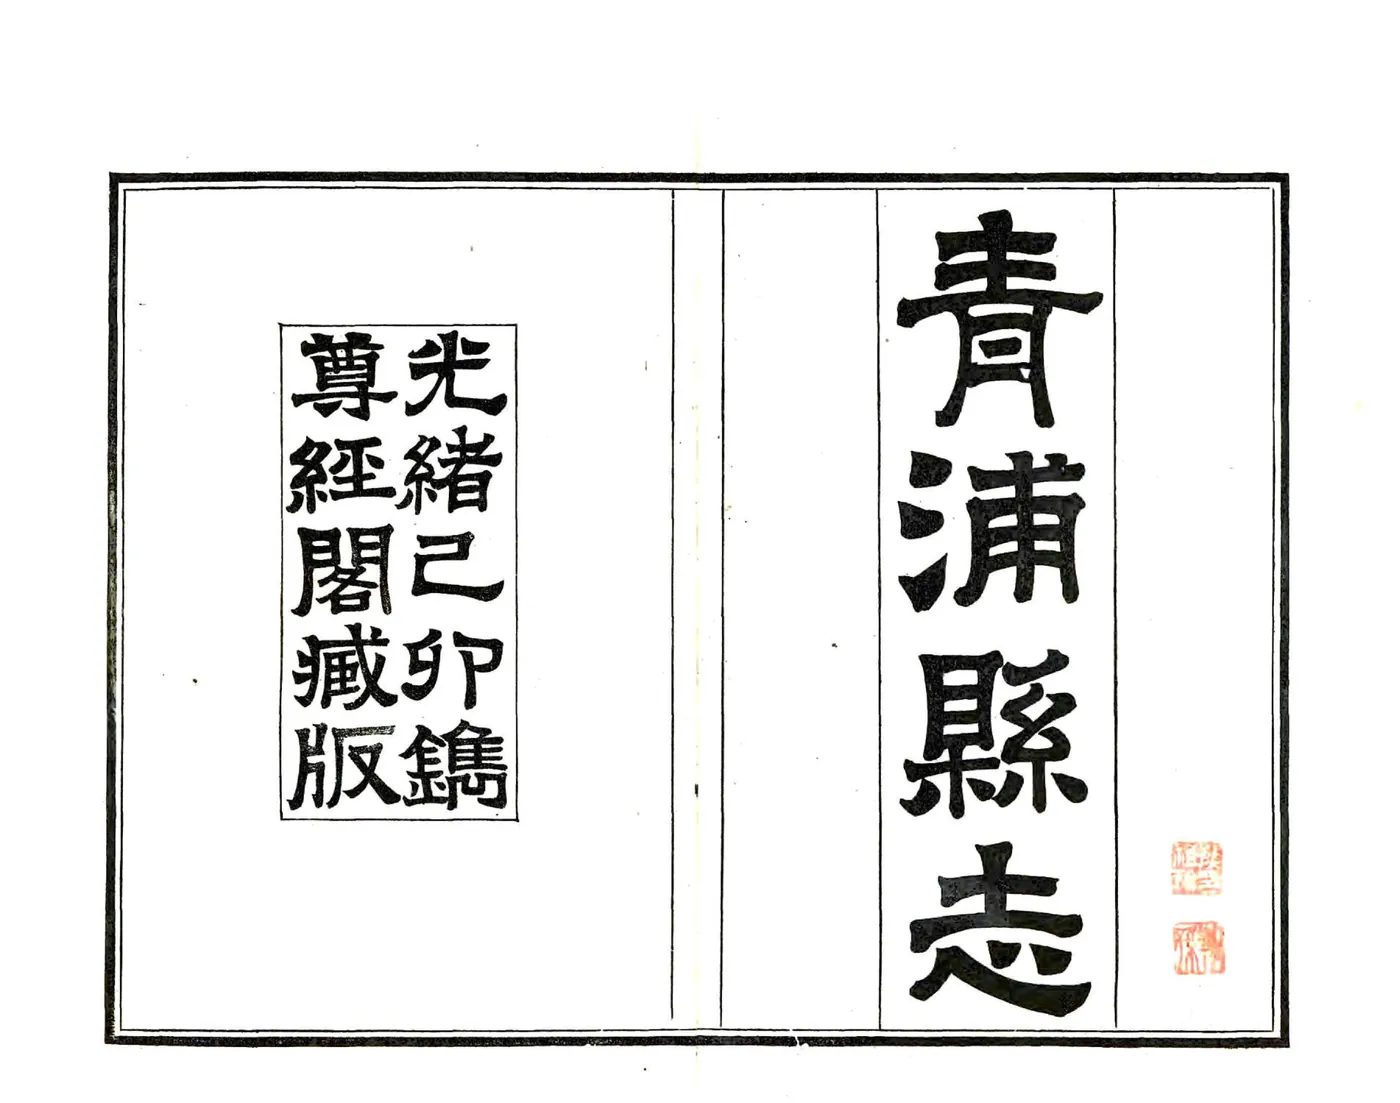 青浦縣志
光緒己卯鐫
尊經閣藏版